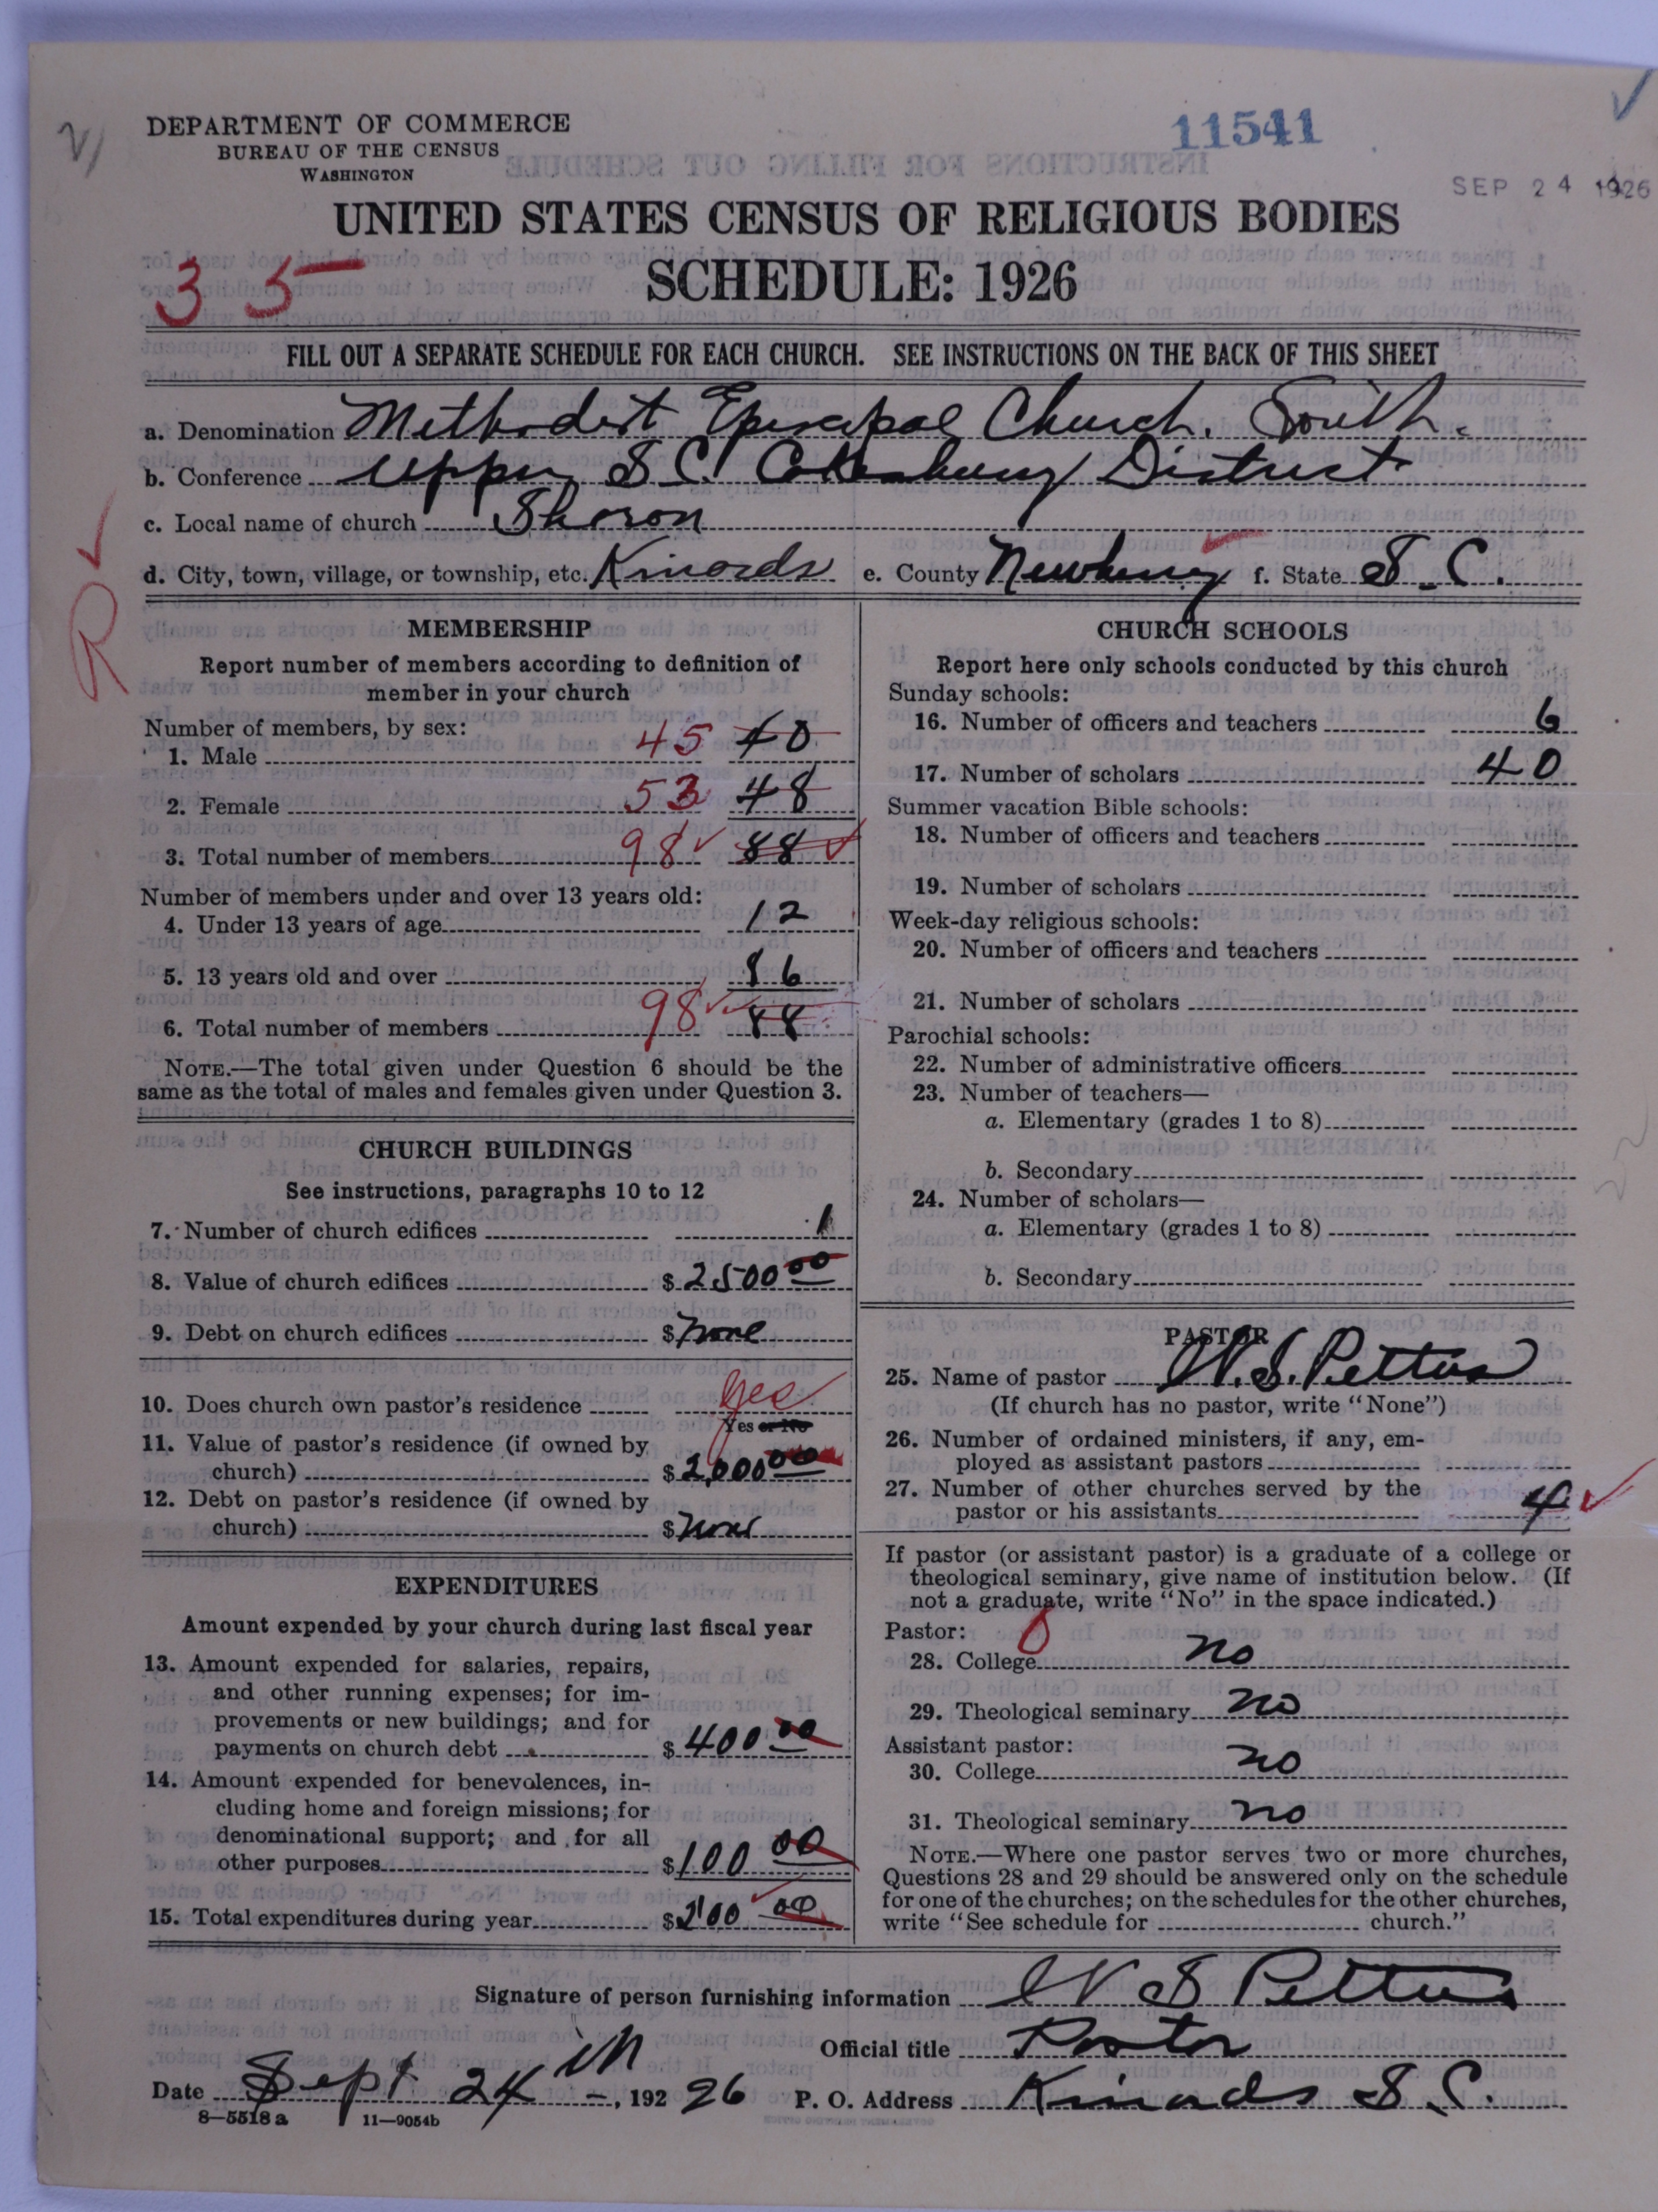 DEPARTMENT OF COMMERCE
BUREAU OF THE CENSUS
WASHINGTON
11541
SEP 24 1926
UNITED STATES CENSUS OF RELIGIOUS BODIES
SCHEDULE: 1926
35
FILL OUT A SEPARATE SCHEDULE FOR EACH CHURCH. SEE INSTRUCTIONS ON THE BACK OF THIS SHEET
a. Denomination Methodist Episcopal Church, South.
b. Conference Upper S.C. Cokesbury District
c. Local name of church Sharon
d. City, town, village, or township, etc. Kinards e. County Newberry f. State S.C.
R
MEMBERSHIP
Report number of members according to definition of
member in your church
Number of members, by sex:
1. Male 45 40
2. Female 53 48
3. Total number of members 98 88
Number of members under and over 13 years old:
4. Under 13 years of age 12
5. 13 years old and over 86
6. Total number of members 98 88
NOTE.—The total given under Question 6 should be the
same as the total of males and females given under Question 3.
CHURCH BUILDINGS
See instructions, paragraphs 10 to 12
7. Number of church edifices 1
8. Value of church edifices $2500 00
9. Debt on church edifices $None
10. Does church own pastor's residence Yes
Yes or No
11. Value of pastor's residence (if owned by
church) $2,000 00
12. Debt on pastor's residence (if owned by
church) $None
EXPENDITURES
Amount expended by your church during last fiscal year
13. Amount expended for salaries, repairs,
and other running expenses; for im-
provements or new buildings; and for
payments on church debt $400 00
14. Amount expended for benevolences, in-
cluding home and foreign missions; for
denominational support; and for all
other purposes $100 00
15. Total expenditures during year $ 00
CHURCH SCHOOLS
Report here only schools conducted by this church
Sunday schools:
16. Number of officers and teachers 6
17. Number of scholars 40
Summer vacation Bible schools:
18. Number of officers and teachers
19. Number of scholars
Week-day religious schools:
20. Number of officers and teachers
21. Number of scholars
Parochial schools:
22. Number of administrative officers
23. Number of teachers—
a. Elementary (grades 1 to 8)
b. Secondary
24. Number of scholars—
a. Elementary (grades 1 to 8)
b. Secondary
PASTOR
25. Name of pastor W. S. Pettus
(If church has no pastor, write "None")
26. Number of ordained ministers, if any, em-
ployed as assistant pastors
27. Number of other churches served by the
pastor or his assistants 4
If pastor (or assistant pastor) is a graduate of a college or
theological seminary, give name of institution below. (If
not a graduate, write "No" in the space indicated.)
Pastor: 0
28. College no
29. Theological seminary no
Assistant pastor:
30. College no
31. Theological seminary no
NOTE.—Where one pastor serves two or more churches,
Questions 28 and 29 should be answered only on the schedule
for one of the churches; on the schedules for the other churches,
write "See schedule for church."
Signature of person furnishing information W S Pettus
Official title Pastor
Date Sept 24th, 192 26 P. O. Address Kinards S.C.
8—5518a 11—9054b